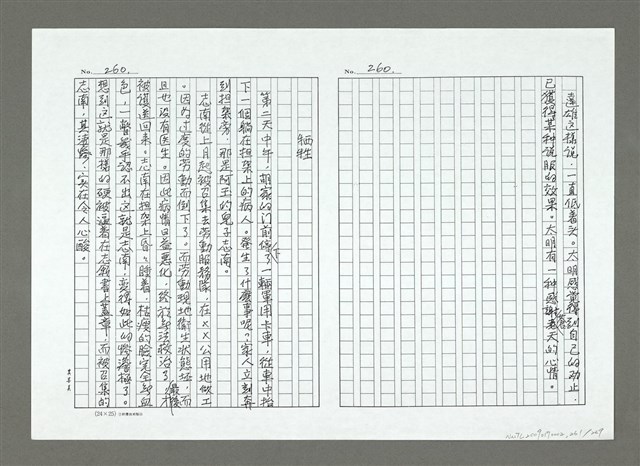 No. 260.
達雄这樣說，一直低着头。太明感觉得到自己的劝止，
已獲得某种説服的效果。太明有一种感謝老天的心情。
No. 260.
犧牲
第二天中午，胡家的门前停下了一輛軍用卡車，從車中抬
下一個躺在担架上的病人。發生了什麼事呢？家人立刻奔
到担架旁，那是阿玉的兒子志南。
志南從上月起被召集去勞動服務隊，在××公用地做工
。因为过度的劳動而倒下了。而劳動現地衛生狀態坏，而
且也没有医生。因此病情日益惡化，終於无法救治了，最後才
被復送回来。志南在担架上昏昏睡着，枯瘦的臉完全无血
色，一瞥幾乎認不出这就是志南，変得如此的悽慘極了。
想到这就是那樣的硬被逼着在志願書上蓋章，而被召集的
志南，其凄慘，实在令人心酸。
(24×25)